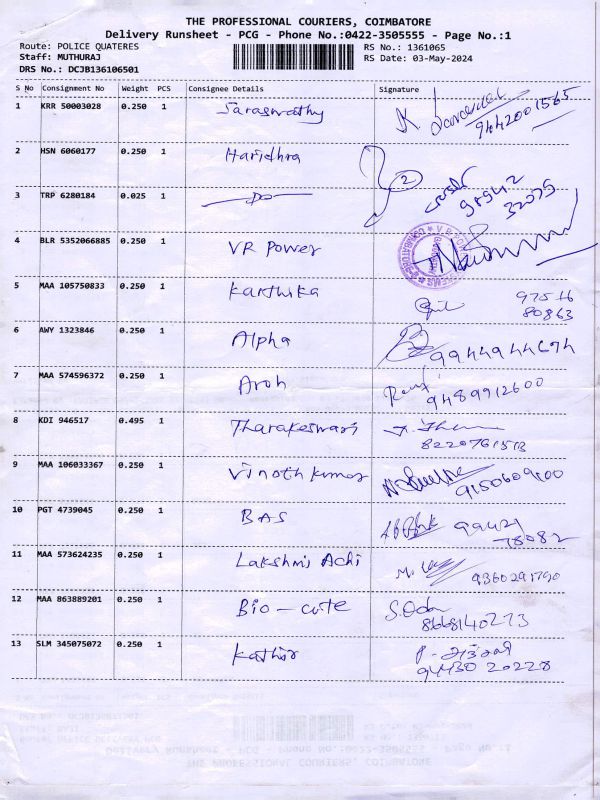 THE PROFESSIONAL COURIERS, COIMBATORE
Delivery Runsheet - PCG - Phone No.:0422-3505555 - Page No.:1
Route: POLICE QUATERES
RS No.: 1361065
Staff: MUTHURAJ
RS Date: 03-May-2024
DRS No.: DCJB136106501
S No Consignment No Weight PCS Consignee Details Signature
1 KRR 50003028 0.250 1 Saraswathy 9442001565
2 HSN 6060177 0.250 1 Haridhra
3 TRP 6280184 0.025 1 Do 2 98942
32075
4 BLR 5352066885 0.250 1 VR Power
5 MAA 105750833 0.250 1 Karthika 97516
80863
6 AWY 1323846 0.250 1 Alpha 9944944674
7 MAA 574596372 0.250 1 Aroh 9489912600
8 KDI 946517 0.495 1 Tharakeswari
8220761513
9 MAA 106033367 0.250 1 Vinoth kumar 9150609600
10 PGT 4739045 0.250 1 BAS 99421
78082
11 MAA 573624235 0.250 1 Lakshmi Achi 9360291790
12 MAA 863889201 0.250 1 Bio - cute
8668140273
13 SLM 345075072 0.250 1 Kathir
94430 20228